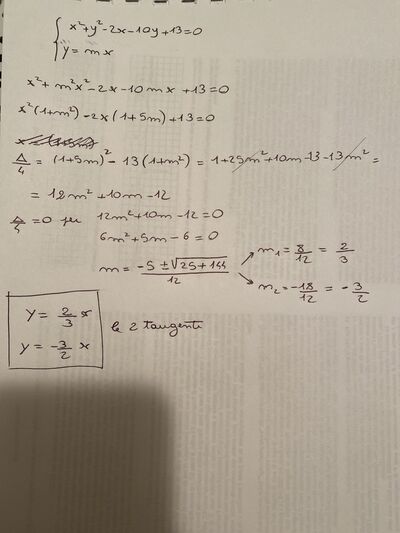 x²+y²-2x-10y+13=0
y=mx
x²+m²x²-2x-10mx+13=0
x²(1+m²)-2x(1+5m)+13=0
Δ/4=(1+5m)²-13(1+m²)=1+25m²+10m-13-13m²=
=12m²+10m-12
Δ/4=0 per 12m²+10m-12=0
6m²+5m-6=0
m=(-5±√(25+144))/12
m₁=8/12=2/3
m₂=-18/12=-3/2
y=2/3 x
y=-3/2 x
le 2 tangenti